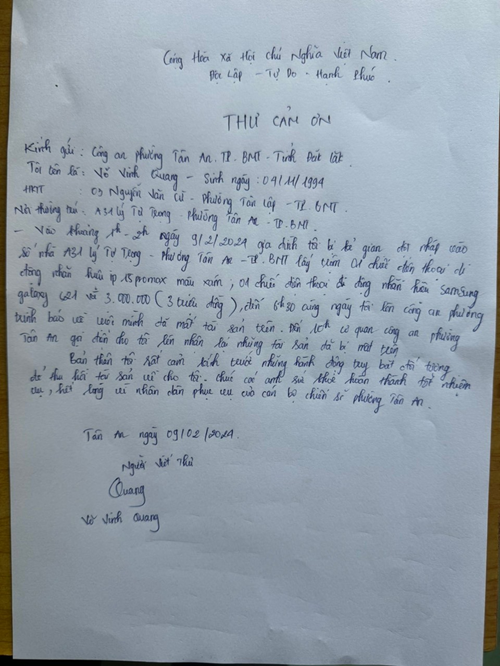 Cộng Hòa Xã Hội chủ Nghĩa Việt Nam.
Độc Lập - Tự Do - Hạnh Phúc
THƯ CẢM ƠN
Kính gửi: Công an phường Tân An. TP. BMT - Tỉnh Đắk Lắk.
Tôi tên là: Võ Vinh Quang - Sinh ngày: 04/11/1994
HKTT : 09 Nguyễn Văn Cừ - Phường Tân Lập - TP. BMT.
Nơi thường trú: A31 Lý Tự Trọng - Phường Tân An - TP. BMT.
- Vào khoảng 1h - 2h ngày 9/2/2024 gia đình tôi bị kẻ gian đột nhập vào
số nhà A31 Lý Tự Trọng - Phường Tân An - TP. BMT lấy trộm 01 chiếc điện thoại di
động nhãn hiệu ip 15 promax màu xám, 01 chiếc điện thoại di động nhãn hiệu Samsung
galaxy và 3.000.000 (3 triệu đồng), đến 6h30 cùng ngày tôi lên công an phường
trình báo về việc mình đã mất tài sản trên. Đến 10h cơ quan công an phường
Tân An gọi điện cho tôi lên nhận lại những tài sản đã bị mất trên
Bản thân tôi rất cảm kích trước những hành động truy bắt đối tượng
để thu hồi tài sản về cho tôi. chúc các anh sức khoẻ hoàn thành tốt nhiệm
vụ, hết lòng vì nhân dân phục vụ của cán bộ chiến sĩ phường Tân An.
Tân An ngày 09/02/2024.
Người viết Thư
Quang
Võ Vinh Quang